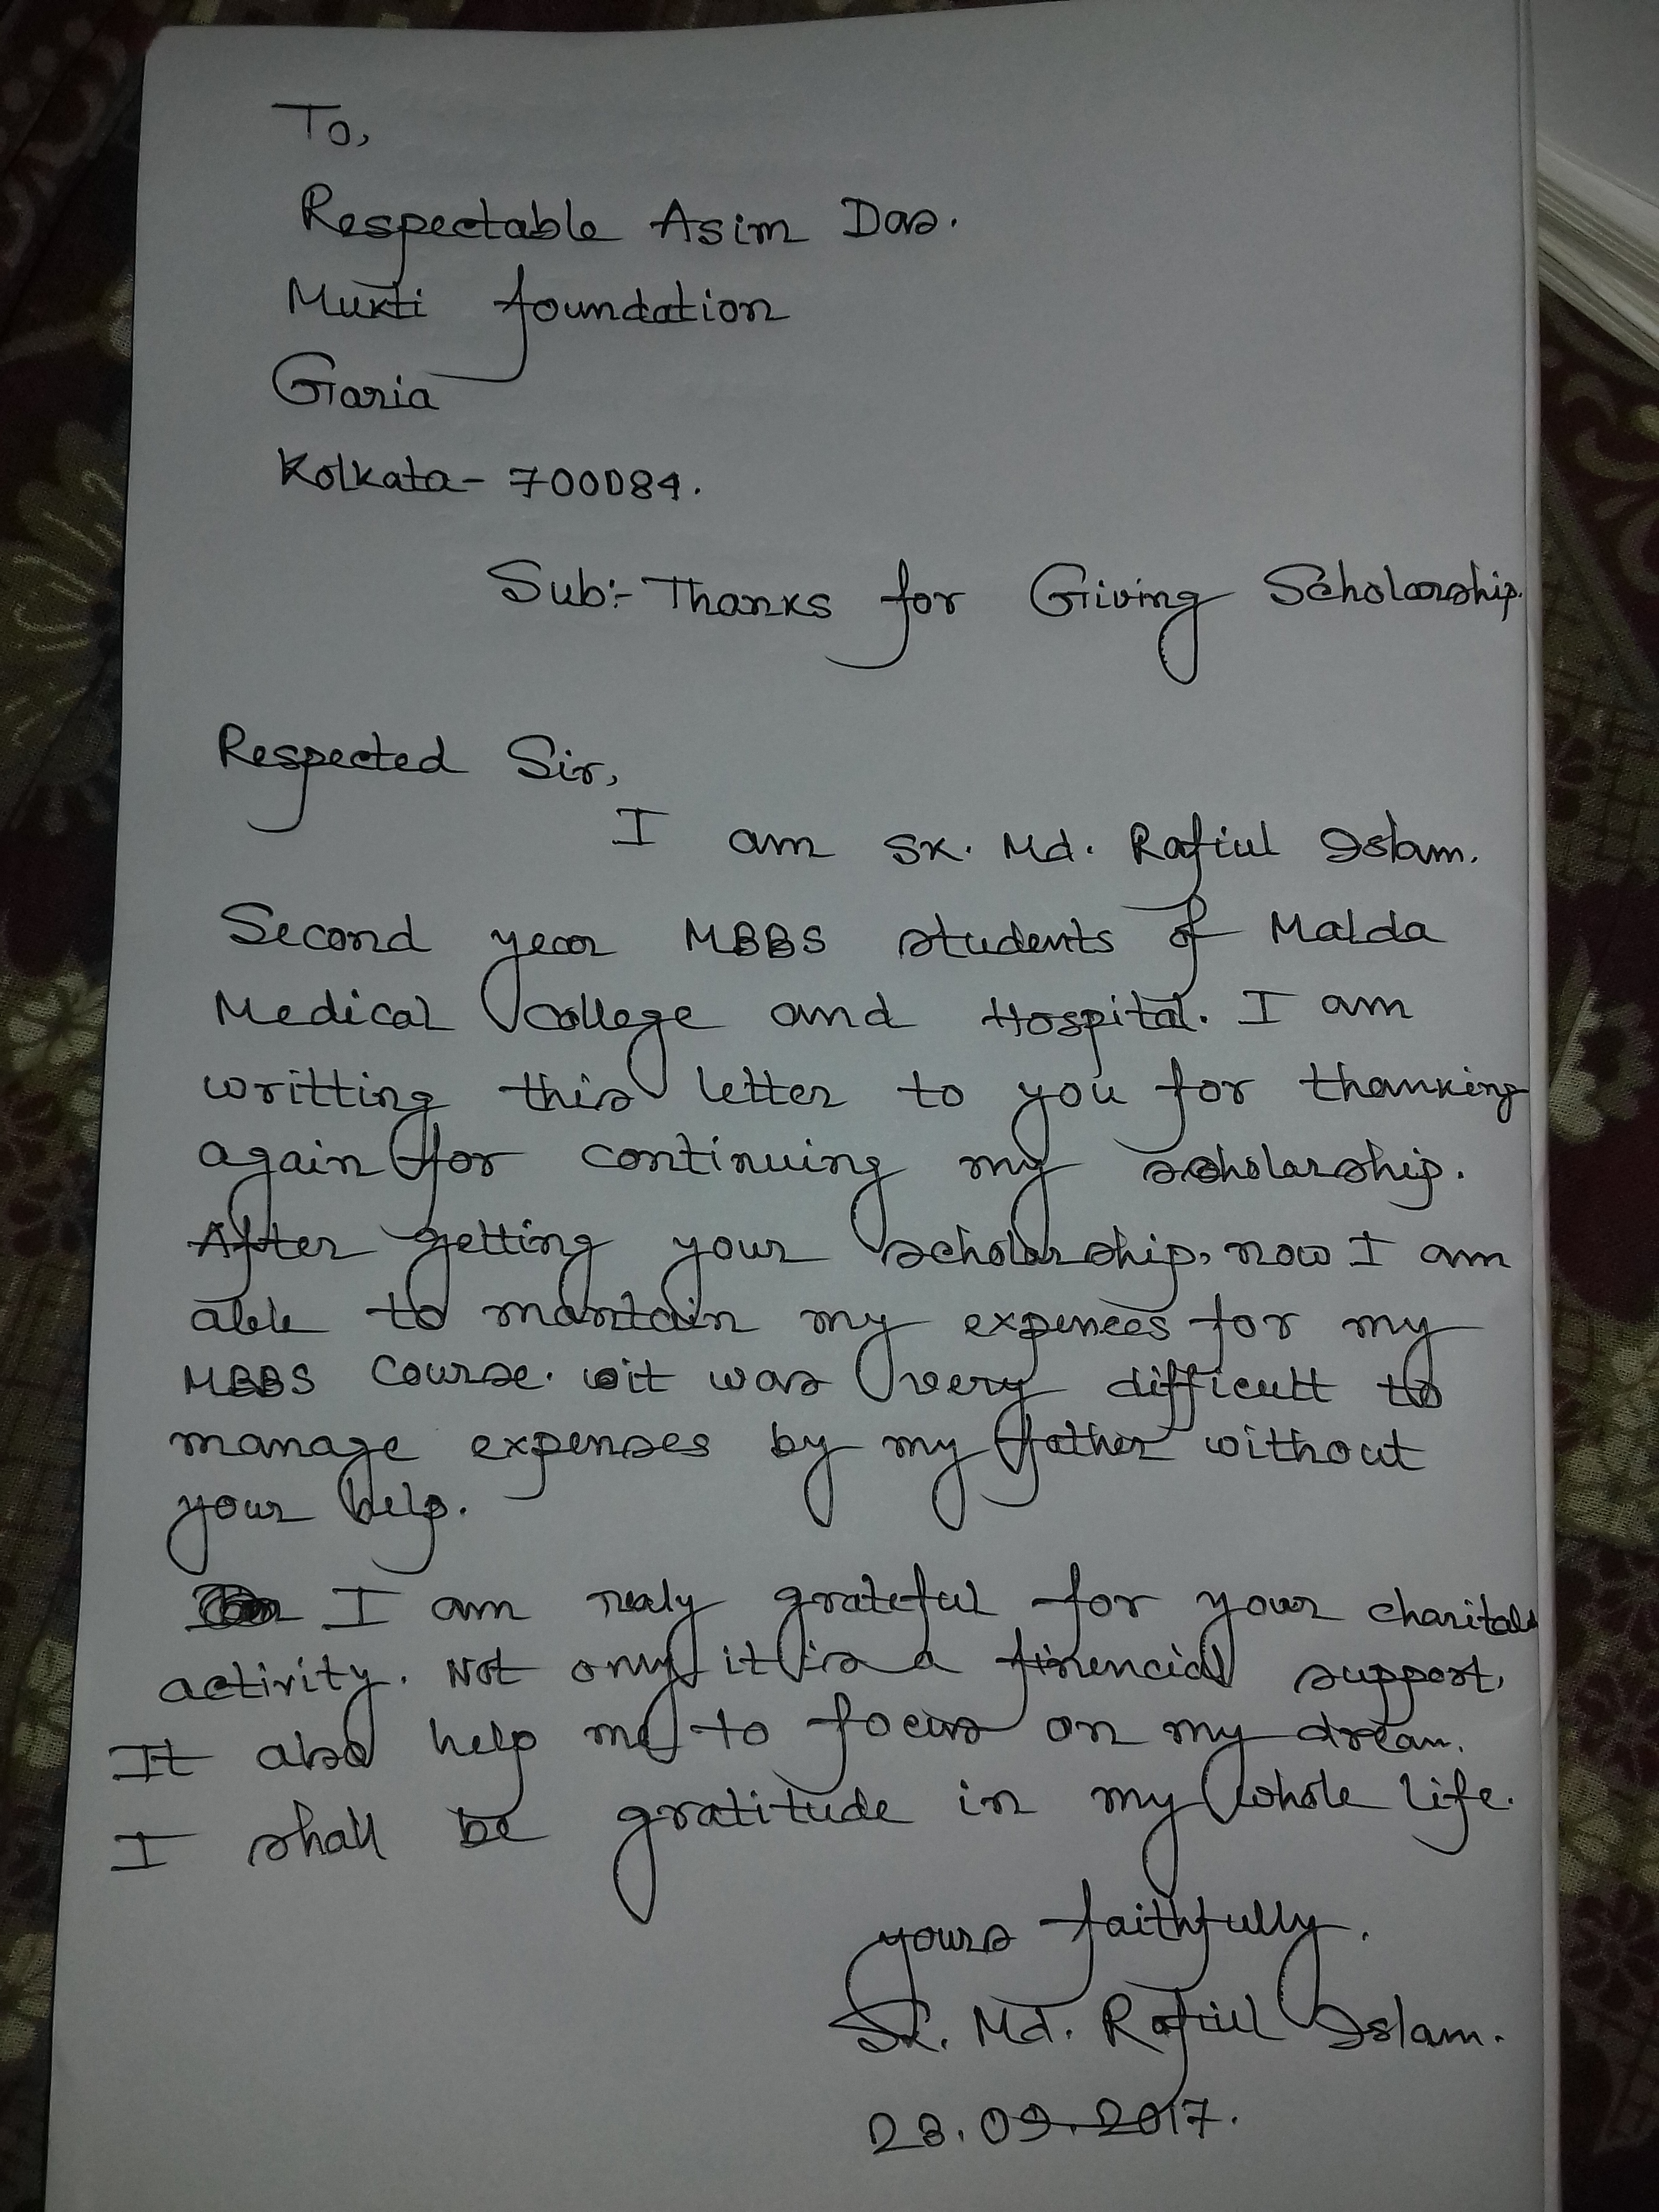 To,
Respectable Asim Das.
Mukti foundation
Garia
Kolkata- 700084.
Sub:- Thanks for Giving Scholarship.
Respected Sir,
I am Sk. Md. Rafiul Islam.
Second year MBBS students of Malda
Medical College and Hospital. I am
writting this letter to you for thanking
again for continuing my scholarship.
After getting your scholarship, now I am
able to mantain my expences for my
MBBS course. it was very difficult to
manage expenses by my father without
your help.
I am realy grateful for your charitable
activity. Not only it is a finencial support,
It also help me to focus on my dream.
I shall be gratitude in my whole life.
yours faithfully.
Sk. Md. Rafiul Islam.
28.09.2017.